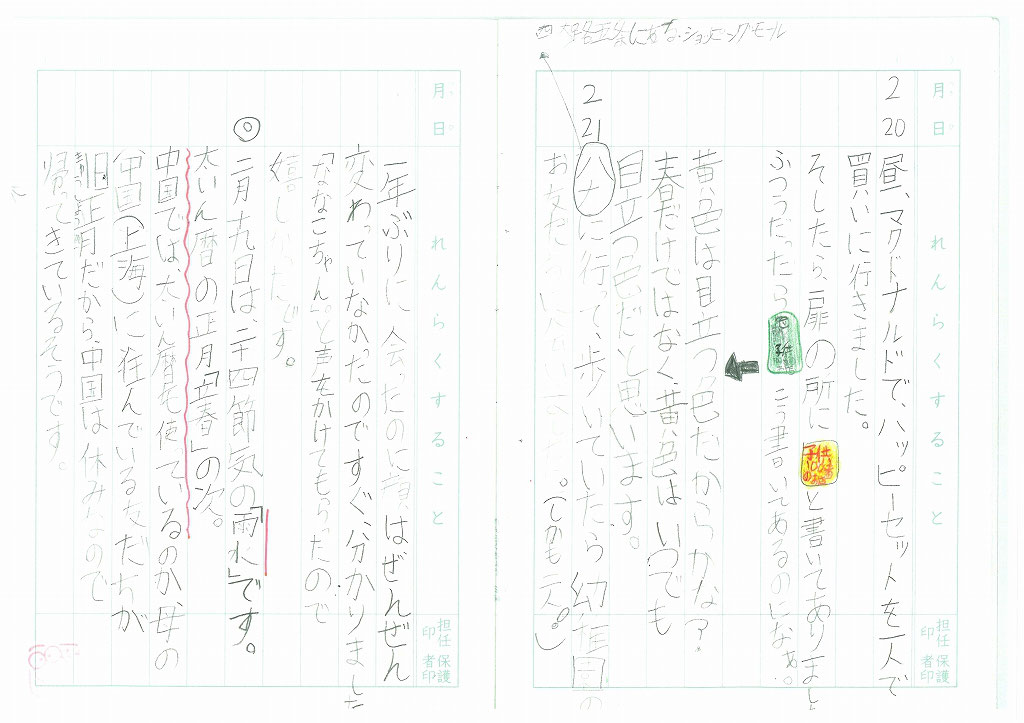 月 日 れんらくすること
2 20
昼、マクドナルドで、ハッピーセットを一人で
買いに行きました。
そしたら、扉の所に と書いてありまし
ふつうだったら こう書いてあるのになぁ。
黄色は目立つ色だからかな?
春だけではなく、黄色はいつでも
目立つ色だと思います。
2 21
八ナに行って、歩いていたら 幼稚園の
お友だち 。(しかも二人。)
担任印 保護者印
月 日 れんらくすること
一年ぶりに会ったのに顔はぜんぜん
変わっていなかったのですぐ分かりました
「ななこちゃん。」と声をかけてもらったので
嬉しかったです。
◎ 二月九日は、二十四節気の「雨水」です。
太いん暦の正月「立春」の次。
中国では、太いん暦を使っているのか母の
中国(上海)に住んでいる友だちが
旧正月だから、中国は休みなので
帰ってきているそうです。
担任印 保護者印